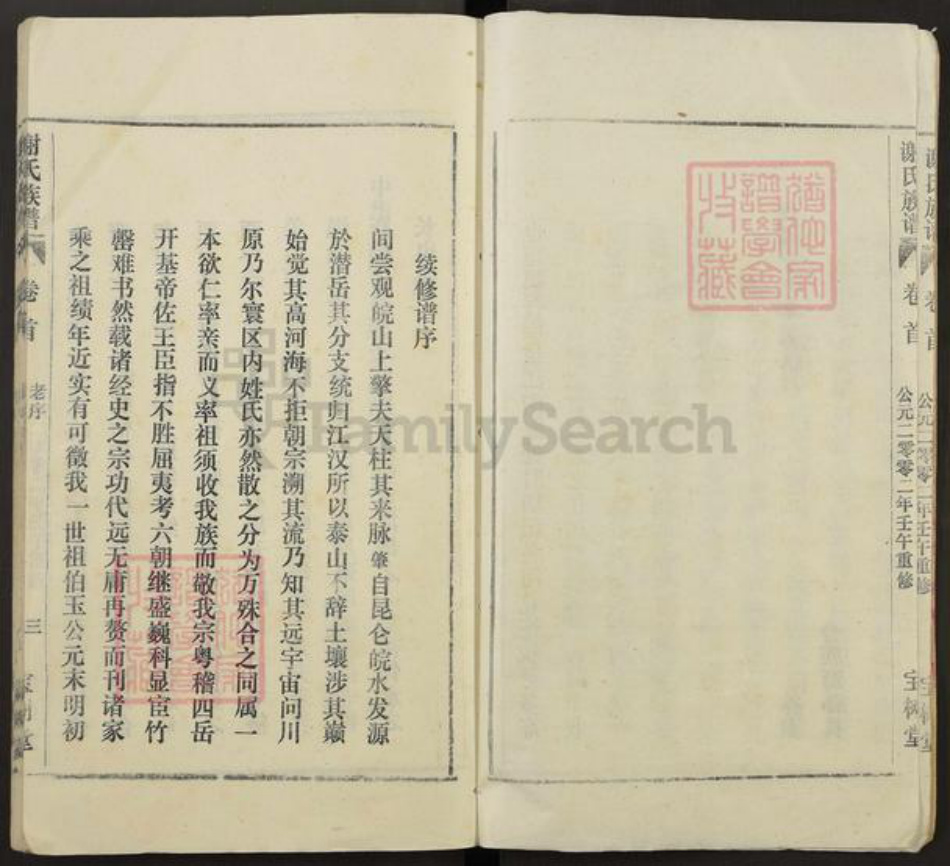 谢氏族谱
卷首
公元二零零二年壬午重修
宝树堂
谱学会
收藏
续修谱序
间尝观皖山上擎天天柱其来脉肇自昆仑皖水发源
於潜岳其分支统归江汉所以泰山不辞土壤涉其巅
始觉其高河海不拒朝宗溯其流乃知其远宇宙间川
原乃尔寰区内姓氏亦然散之分为万殊合之同属一
本欲仁率亲而义率祖须收我族而敬我宗粤稽四岳
开基帝佐王臣指不胜屈夷考六朝继盛巍科显宦竹
罄难书然载诸经史之宗功代远无庸再赘而刊诸家
乘之祖绩年近实有可徵我一世祖伯玉公元末明初
谢氏族谱
卷首
老序
三
FamilySearch